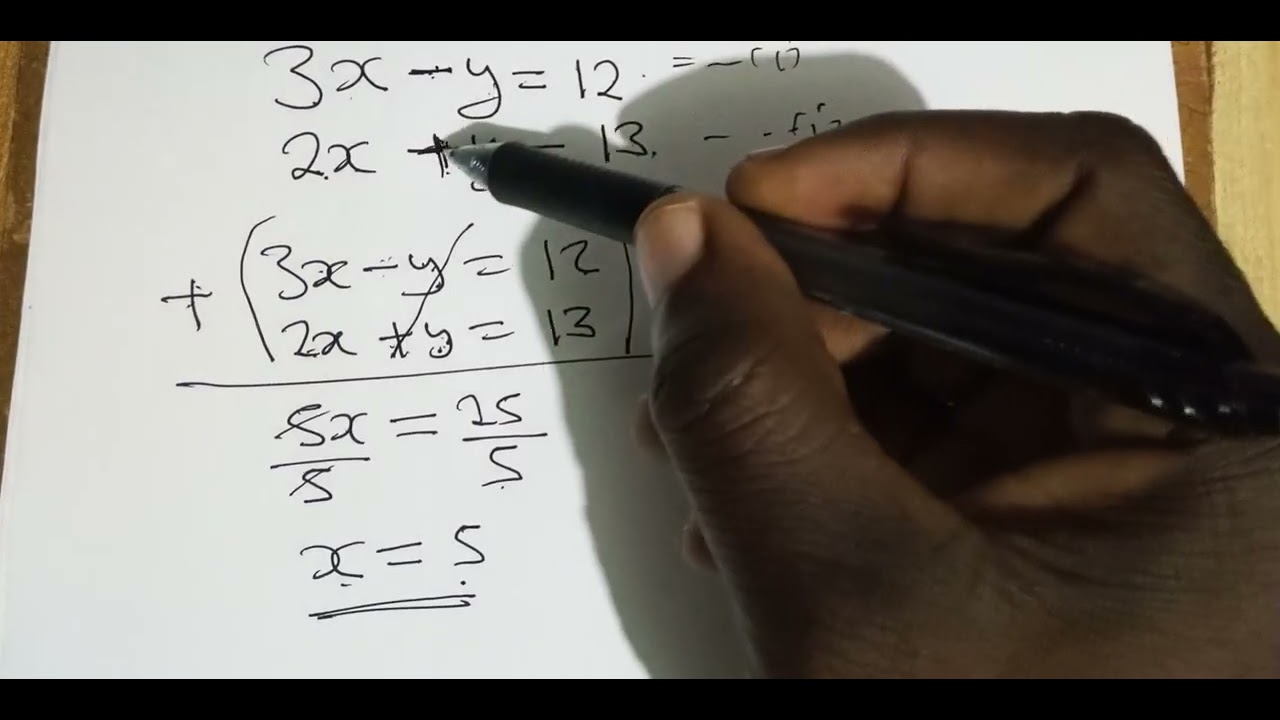 3x - y = 12. = - (i)
2x + y = 13. -
+ (3x - y = 12
2x + y = 13)
5x = 25
5 5
x = 5